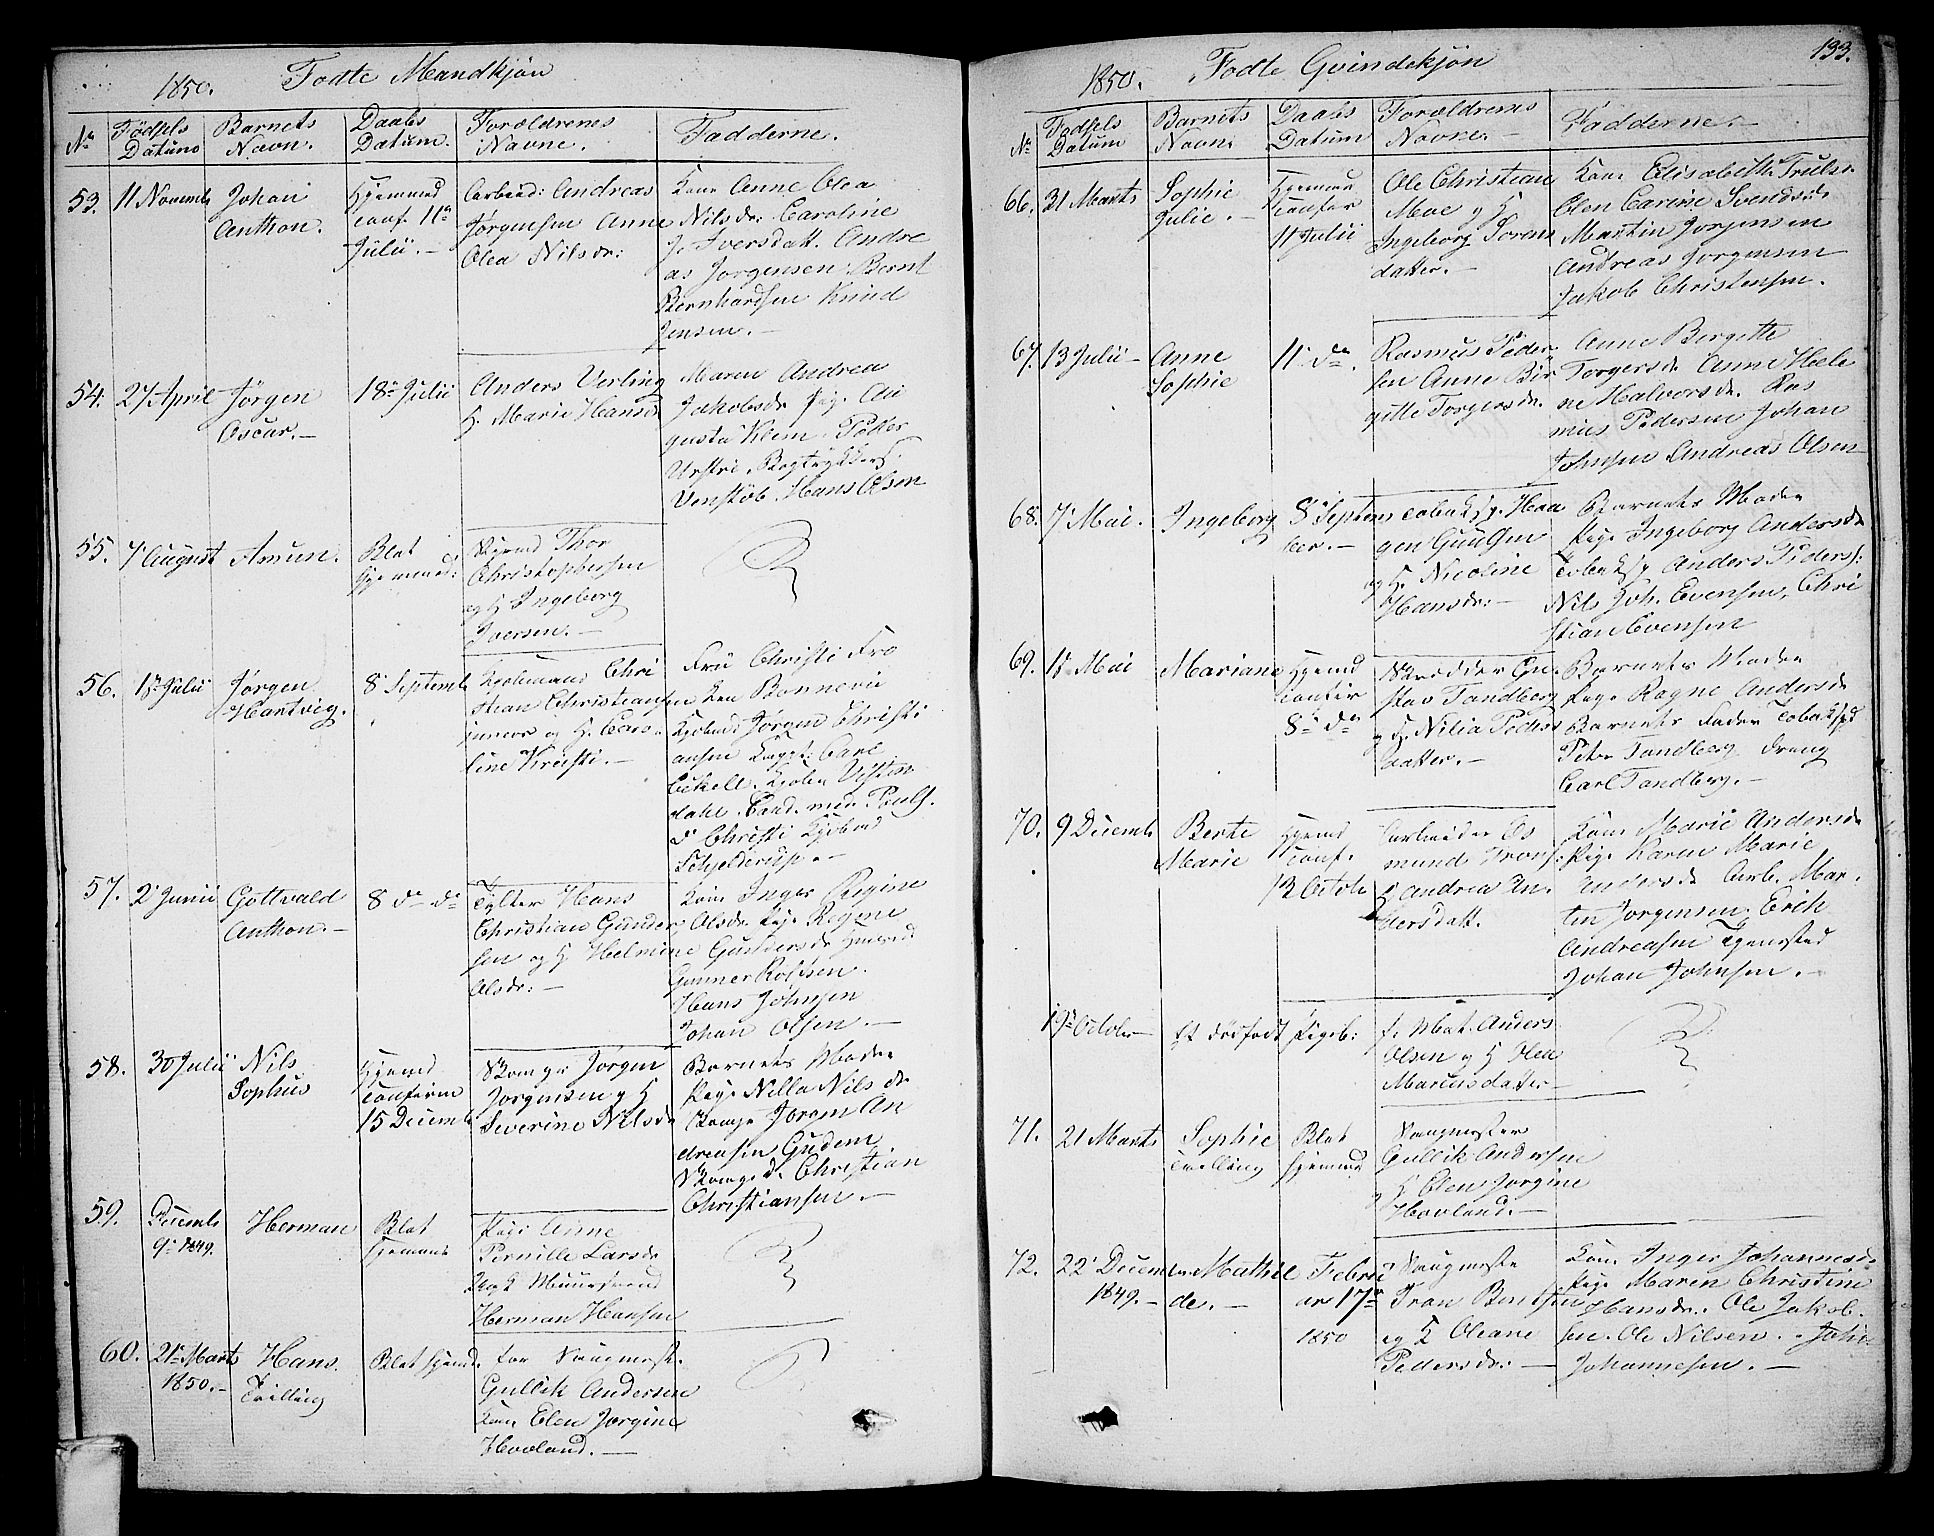 1850. Fødte Mandkjøn
No Fødsels Datum Barnets Navn. Daabs Datum. Forældrenes Navne. Fadderne.
53. 11 Novemb Johan Anthon. Hjemmed conf 11te Julii. –
Arbeid: Andreas
Jørgensen Anne
Olea Nilsdr:
Kone Anne Olea
Nilsdr: Caroline
J. Iversdatt. Andre
as Jorgensen. Bernt
Bernhardsen Knud
Jensen. –
54. 27 April Jørgen Oscar. – 18de Julii
Anders Verling
H. Marie Hansd
Maren Andrea
Jakobsdr Pige Au
gusta Klem. Peder
Bogtrykkers.
Venstøb. Hans Olsen
55. 7 August Amun. Blot hjemmed:
Thor
Christophersen
og H Ingeborg
Iversen. –
56. 17 Julii Jørgen Hartvig. 8 Septemb
Kjøbmand Chri
stian Christiansen
junior og H. Caro-
line Kruse. –
Fru Christi Fro
Jørgen Christi
ansen Capt: Carl
dahl. Cand. med Pauls.
d Christi Kjøbmd
Schjelderup. –
57. 2 Junii Gottvald Anthon. – 8 do do
Hans
Christian Gunder
sen og H Helmine
Olsdr: –
Kone Inger Regine
Olsdr. Pige Regine
Gundersdr
Gunner Rolfsen.
Hans Johnsen
Johan Olsen. –
58. 30 Julii Nils Sophus Hjemmd confirm 15 Decemb
Jørgen
Jorgensen og H
Severine Nilsdr
Barnets Moder
Pige Nilla Nilsdr
An
dreasen Gudem
Christian
Christiansen. –
59. Decemb 9de 1849. Herman Blot hjemmed
Pige Anne
Pernille Larsdr
Herman Hansen
60. 21de Marts 1850. – Hans. Tvilling Blot hjemd.
for Vaugmest.
Gullik Andersen
Kone Elen Jorgine
Hovland. –
133.
1850. Fodte Qvindekjøn
No Fodsels Datum Barnets Navn. Daabs Datum Forældrenes Navne. – Fadderne. –
66. 31 Marts Sophie Julie. – Hjemme confir 11 Julii
Ole Christian
Moe og H
Ingeborg Sorens
datter. –
Kone Elisabeth Trulsd.
Olen Carine Svendsdr
Martin Jorgensen
Andreas Jorgensen
Jakob Christensen.
67. 13 Julii – Anne Sophie 11 do.
Rasmus Peder
sen Anne Bir
gitte Torgersdr.
Anne Bergitte
Torgersdr Anne Hele
ne Halvorsdr. Ras
mus Pedersen Johan
Johnsen Andreas Olsen
68. 7 Mai. Ingeborg 8 Septem ber. –
Tobaksp. Haa
gen Gulsen
og H. Nicoline
Hansdr: –
Barnets Moder
Pige Ingeborg Andersdr
Tobaksp Anders Peders:
Nils Joh. Evensen, Chri
stian Evensen
69. 15 Mai Mariane Hjemd confir 8de do
Skrædder Gu
stav Tandberg
og H. Nilia Peders
datter. –
Barnets Moder
Pige Ragne Andersdr
Barnets Fader Tobaksp
Peter Tandberg Dreng
Carl Tandberg. –
70. 9 Decemb Berte Marie Hjemd conf. 13 Octob
Arbeider Os
mund Trons:
H Andrea An.
dersdatt.
Kone Marie Andersdr
Pige Karen Marie
Andersdr Arb. Mar.
tin Jorgensen. Erik
Andreasen Tjenested
Johan Johnsen. –
19de October Et dødfodt Pigeb:
f. Mat. Anders
Olsen og H Olea
Mariusdatter –
71. 21 Marts Sophie Tvilling Blot hjemmed
Vaugmester
Gullik Andersen
og H Elen Jorgine
Hovland. –
72. 22 Decem 1849. – Mathil de. – Febru ar 17de 1850
Vaugmeste
Tron Bentsen
og H Oleane
Pedersdr: –
Kone Inger Johannesd.
Pige Maren Christine
Hansdr. Ole Jakob.
sen. Ole Nilsen. John
Johannesen. –